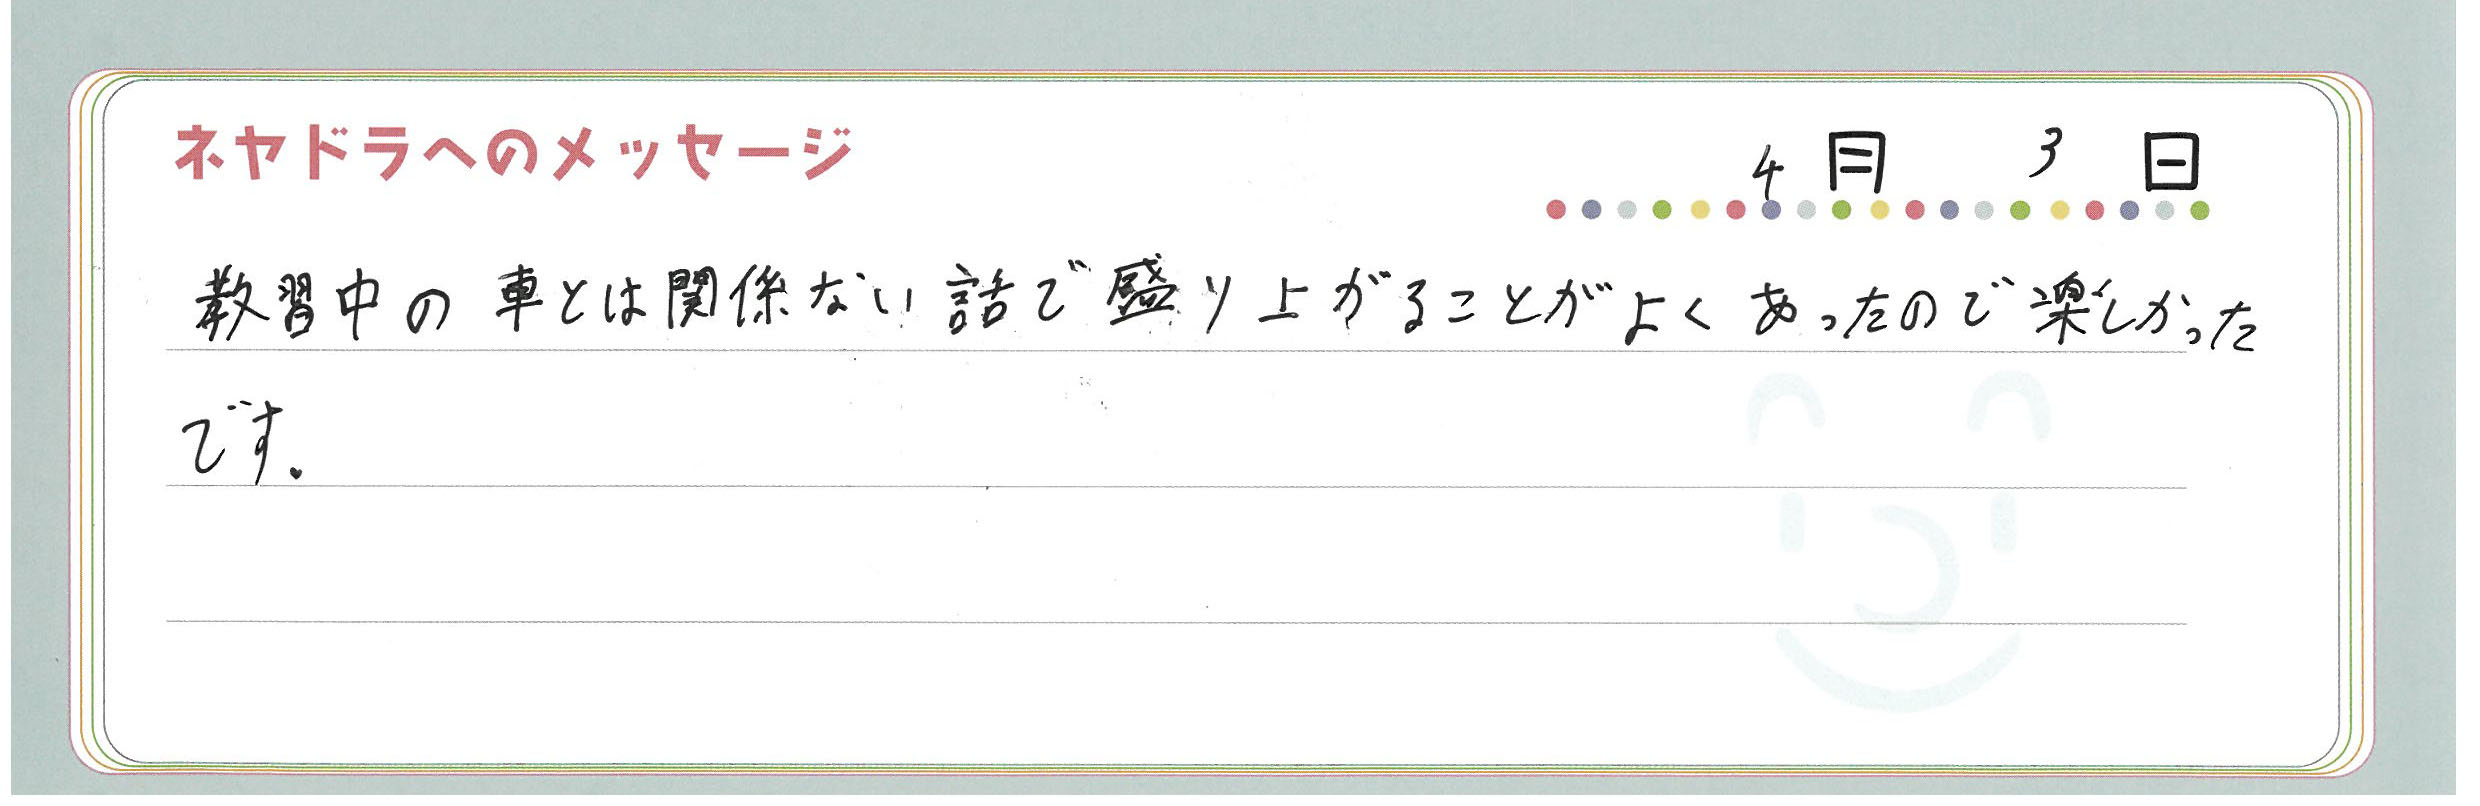 ネヤドラへのメッセージ
4月 3日
教習中の車とは関係ない話で盛り上がることがよくあったので楽しかった
です。